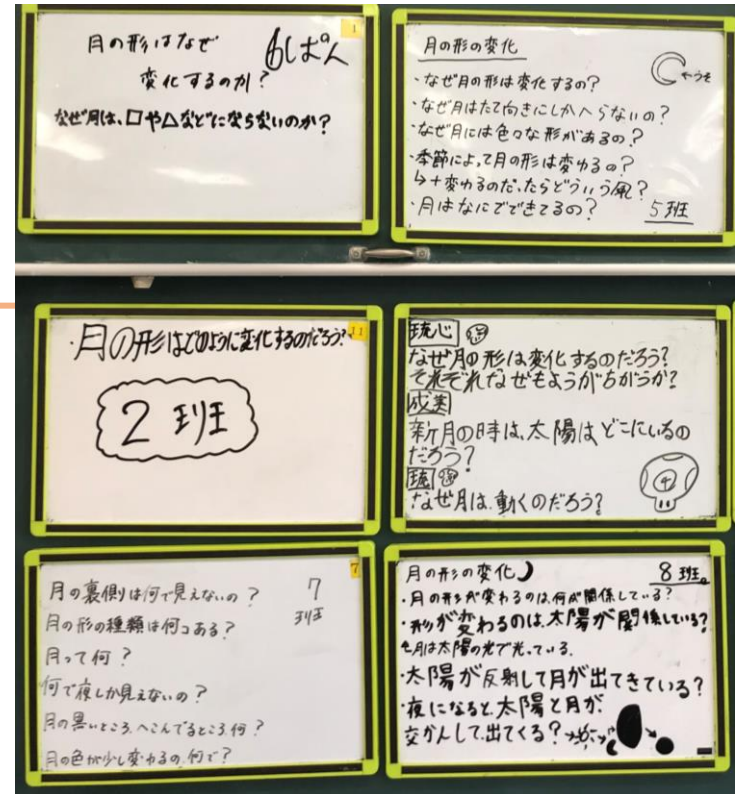 1
月の形はなぜ
6ぱん
変化するのか?
なぜ月は、□や△などにならないのか?
月の形の変化
・なぜ月の形は変化するの?
・なぜ月はたて向きにしかへらないの?
・なぜ月には色々な形があるの?
・季節によって月の形は変わるの?
↳+変わるのだったらどういう風?
・月はなにでできてるの?
5班
11
・月の形はどのように変化するのだろう?
2班
琉心
なぜ月の形は変化するのだろう?
それぞれなぜもようがちがうか?
成実
新月の時は、太陽はどこにいるの
だろう?
琉
なぜ月は、動くのだろう?
4
7
月の裏側は何で見えないの?
7
班
月の形の種類は何コある?
月って何?
何で夜しか見えないの?
月の黒いところ、へこんでるところ何?
月の色が少し変わるの、何で?
月の形の変化
8班。
・月の形が変わるのは、何が関係している?
・形が変わるのは、太陽が関係している?
月は太陽の光で光っている。
・太陽が反射して月が出てきている?
・夜になると、太陽と月が、
交かんして、出てくる?